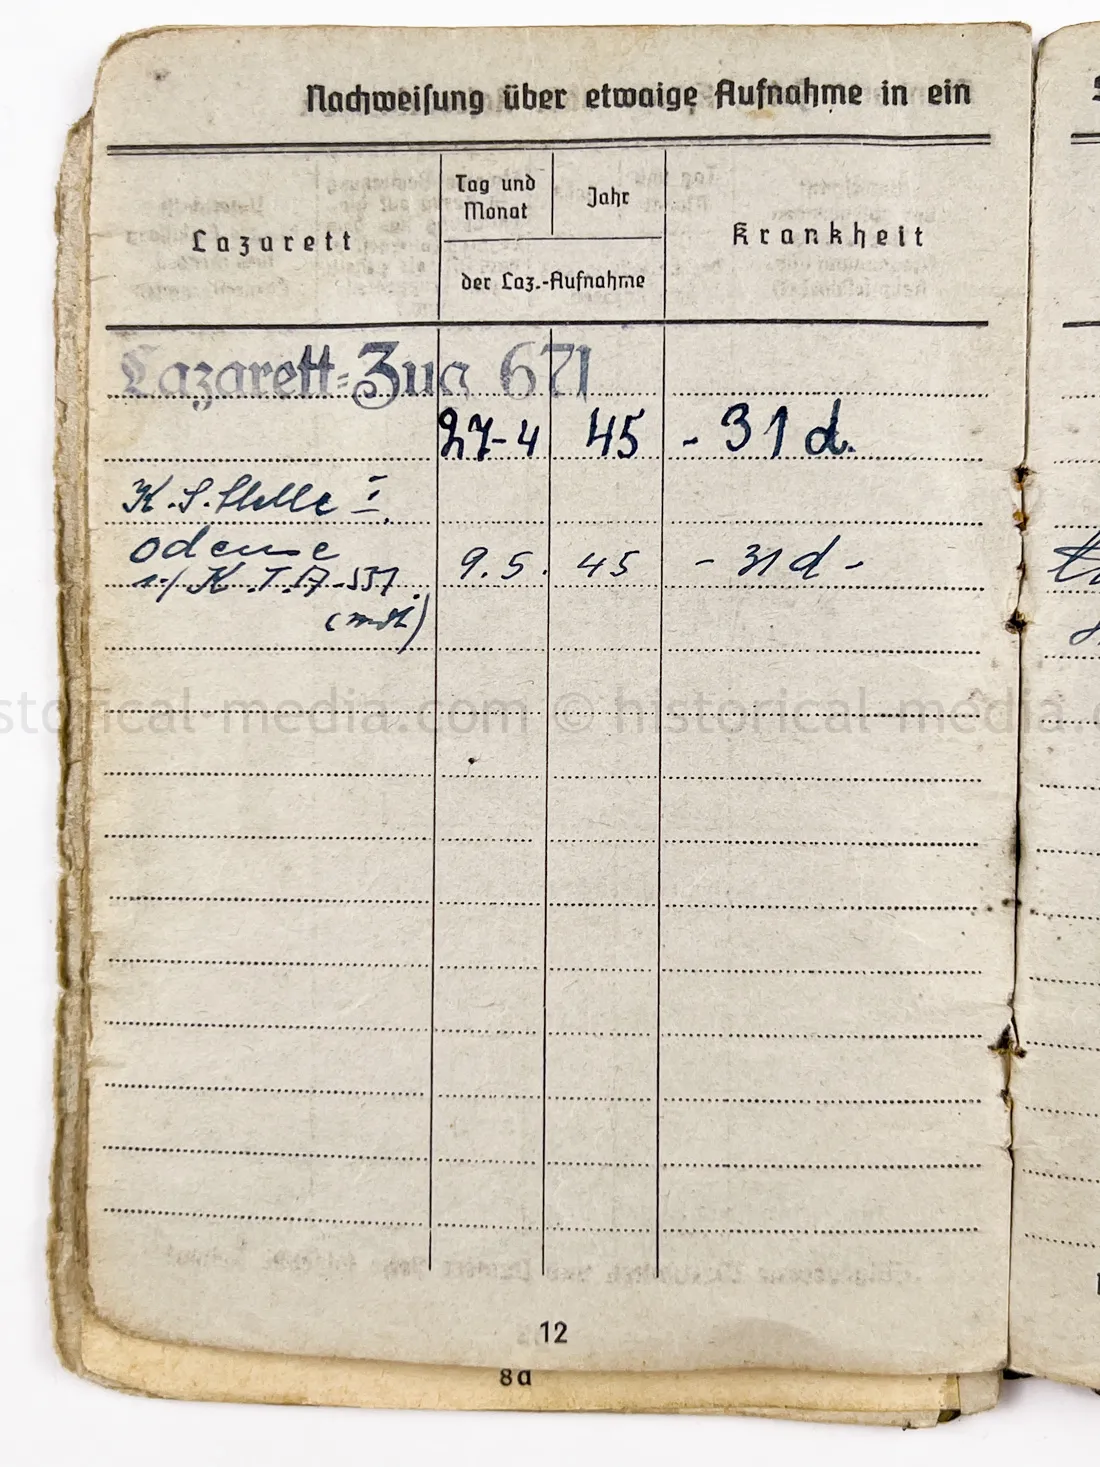 Nachweisung über etwaige Aufnahme in ein
Lazarett
Tag und Monat
Jahr
der Laz.-Aufnahme
Krankheit
Lazarett-Zug 671
27-4 45 - 31 d.
K.S.Stelle I.
Odense
K.T.A. 551 9.5. 45 - 31 d -
historical-media.com © historical-media.
12
8a